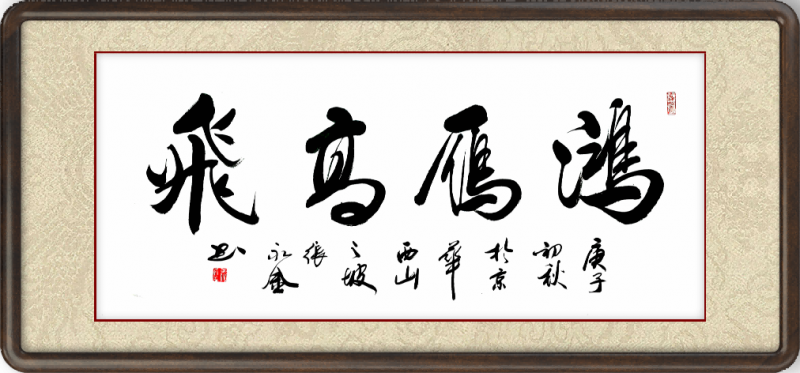 鴻鴈高飛
庚子初秋於京華西山之坡張永金书